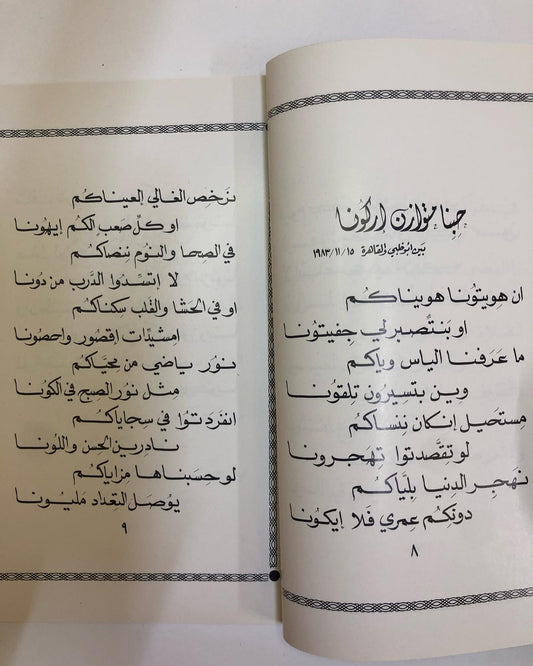 حبنا متوازن اركونا
بين ابوظبي والقاهرة ١٩٨٣/١١/١٥
ان هويتونا هويناكم
او بنتصبر لي جفيتونا
ما عرفنا الياس وياكم
وين بتسيرون تلقونا
مستحيل إنكان ننساكم
لو تقصدتوا تهجرونا
نهجر الدنيا بلياكم
دونكم عمري فلا إيكونا
٨
نرخص الغالي إلعيناكم
او كل صعب الكم إيهونا
في الصحا والنوم ننصاكم
لا إتسدوا الدرب من دونا
او في الحشا والقلب سكناكم
امشيدات اقصور واحصونا
نور بياضي من محياكم
مثل نور الصبح في الكونا
انفردتوا في سجاياكم
نادرين الحسن واللونا
لو حسبناها مزاياكم
يوصل التعداد مليونا
٩